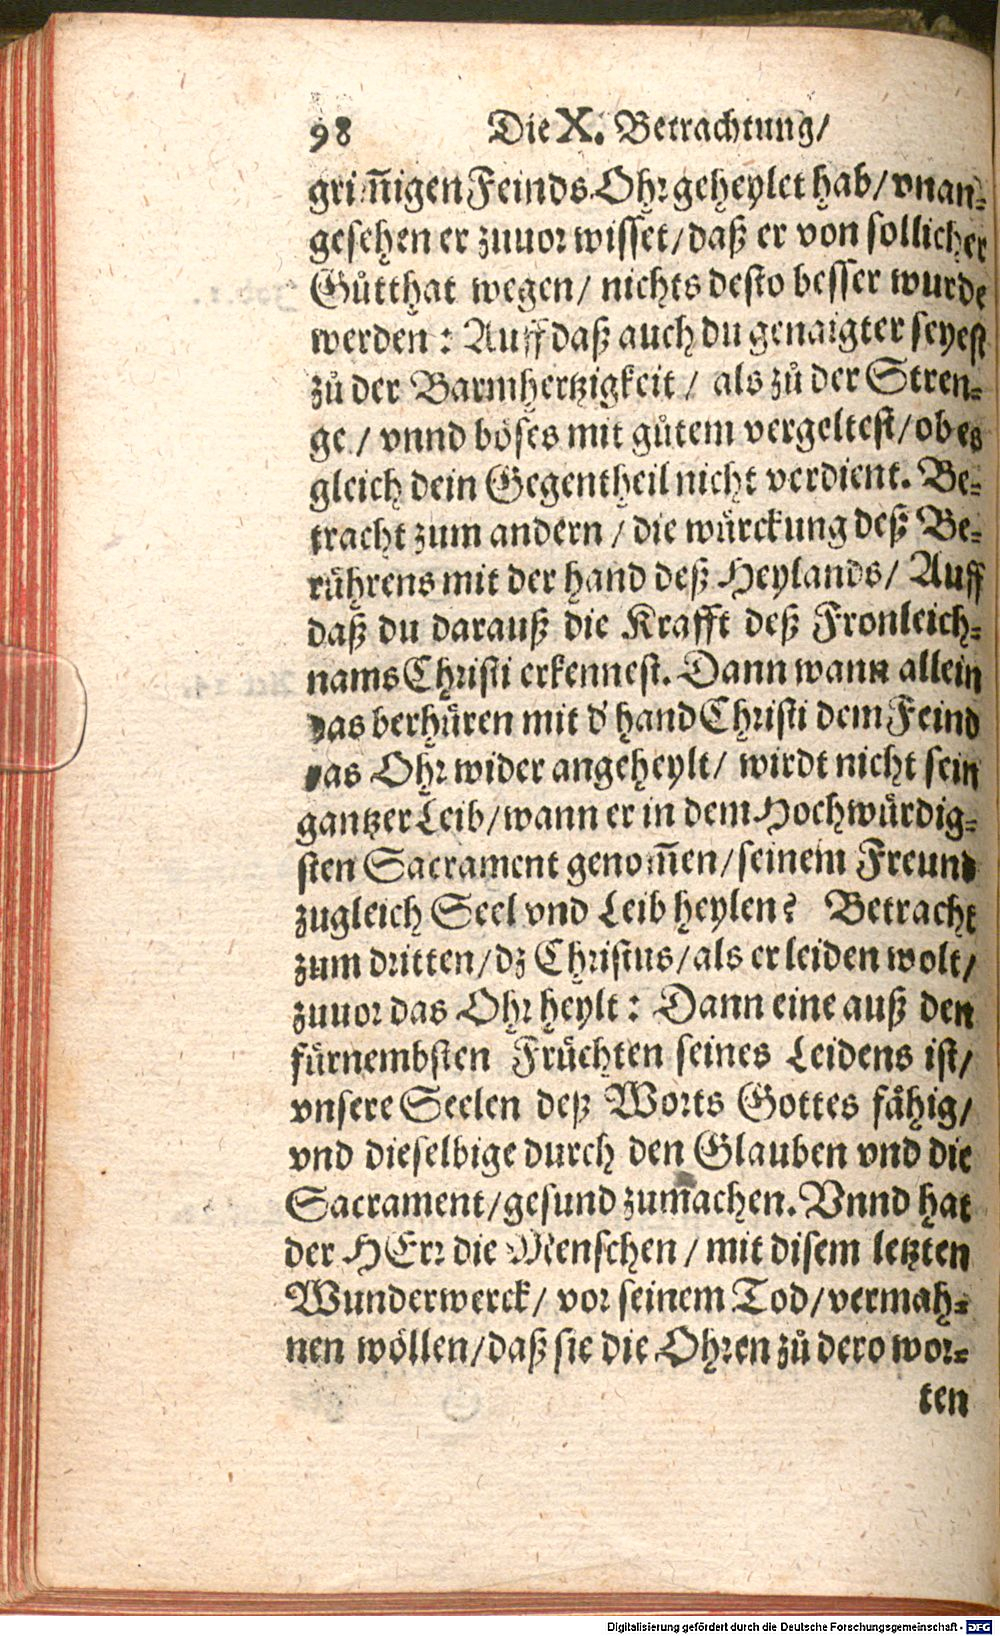 98 Die X. Betrachtung/
grim̃igen Feinds Ohr geheylet hab/ vnan-
gesehen er zuuor wisset/ daß er von sollicher
Gůtthat wegen/ nichts desto besser wurde
werden : Auff daß auch du genaigter seyest
zů der Barmhertzigkeit/ als zů der Stren-
ge/ vnnd böses mit gůtem vergeltest/ ob es
gleich dein Gegentheil nicht verdient. Be-
tracht zum andern / die würckung deß Be-
rührens mit der hand deß Heylands/ Auff
daß du darauß die Krafft deß Fronleich-
nams Christi erkennest. Dann wann allein
das berhüren mit d' hand Christi dem Feind
das Ohr wider angeheylt/ wirdt nicht sein
gantzer Leib/ wann er in dem Hochwürdig-
sten Sacrament genom̃en/ seinem Freund
zugleich Seel vnd Leib heylen? Betracht
zum dritten/ dz Christus/ als er leiden wolt/
zuuor das Ohr heylt : Dann eine auß den
fürnembsten Früchten seines Leidens ist/
vnsere Seelen deß Worts Gottes fähig/
vnd dieselbige durch den Glauben vnd die
Sacrament/ gesund zumachen. Vnnd hat
der HErr die Menschen / mit disem letzten
Wunderwerck/ vor seinem Tod/ vermah-
nen wöllen/ daß sie die Ohren zů dero wor-
ten
Digitalisierung gefördert durch die Deutsche Forschungsgemeinschaft - DFG